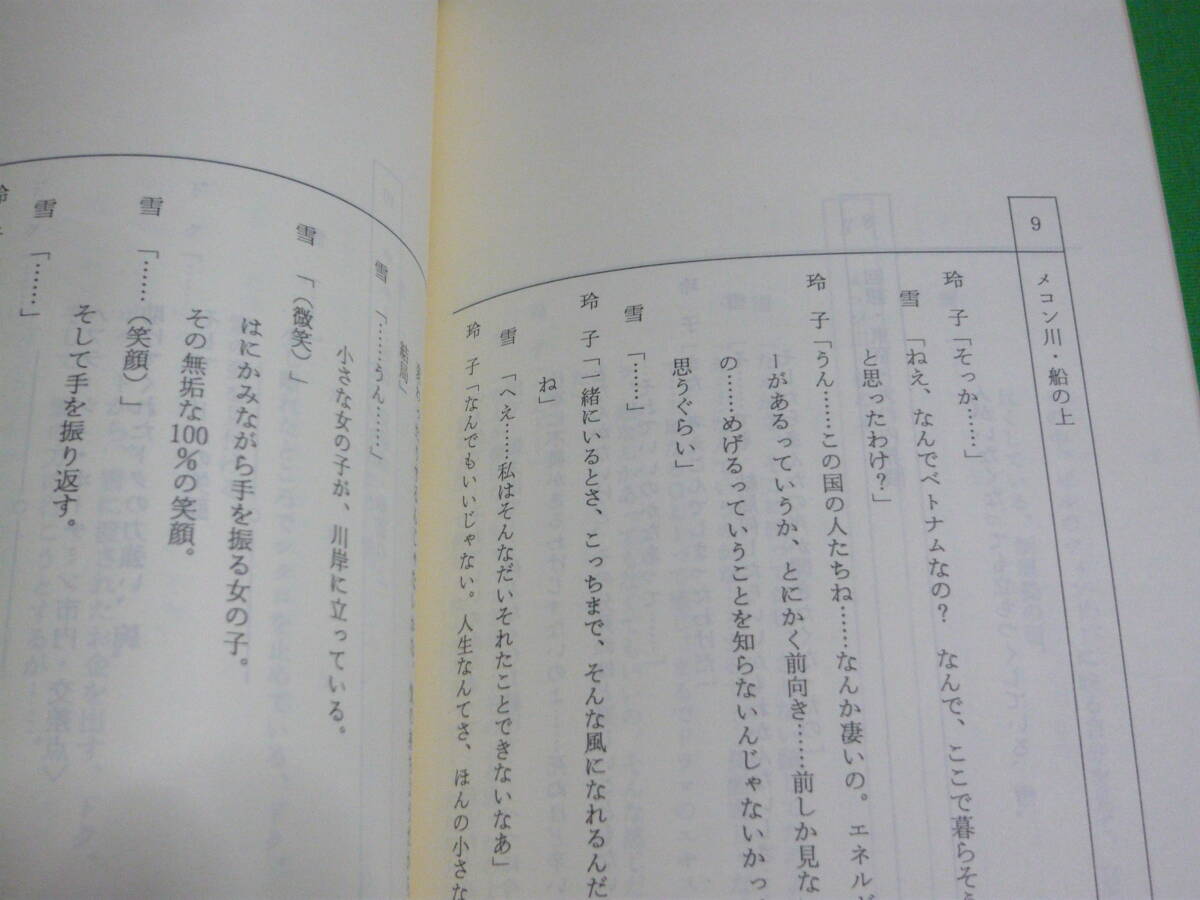 9
メコン川・船の上
玲 子「そっか……」
雪 「ねえ、なんでベトナムなの？ なんで、ここで暮らそう
と思ったわけ？」
玲 子「うん……この国の人たちね……なんか凄いの。エネルギ
ーがあるっていうか、とにかく前向き……前しか見な
の……めげるっていうことを知らないんじゃないかっ
思うぐらい」
雪 「……」
玲 子「一緒にいるとさ、こっちまで、そんな風になれるんだ
ね」
雪 「へえ……私はそんなだいそれたことできないなあ」
玲 子「なんでもいいじゃない。人生なんてさ、ほんの小さな
結局」
雪 「……うん……」
小さな女の子が、川岸に立っている。
雪 「（微笑）」
はにかみながら手を振る女の子。
その無垢な100％の笑顔。
雪 「……（笑顔）」
そして手を振り返す。
雪 「……」
玲 子